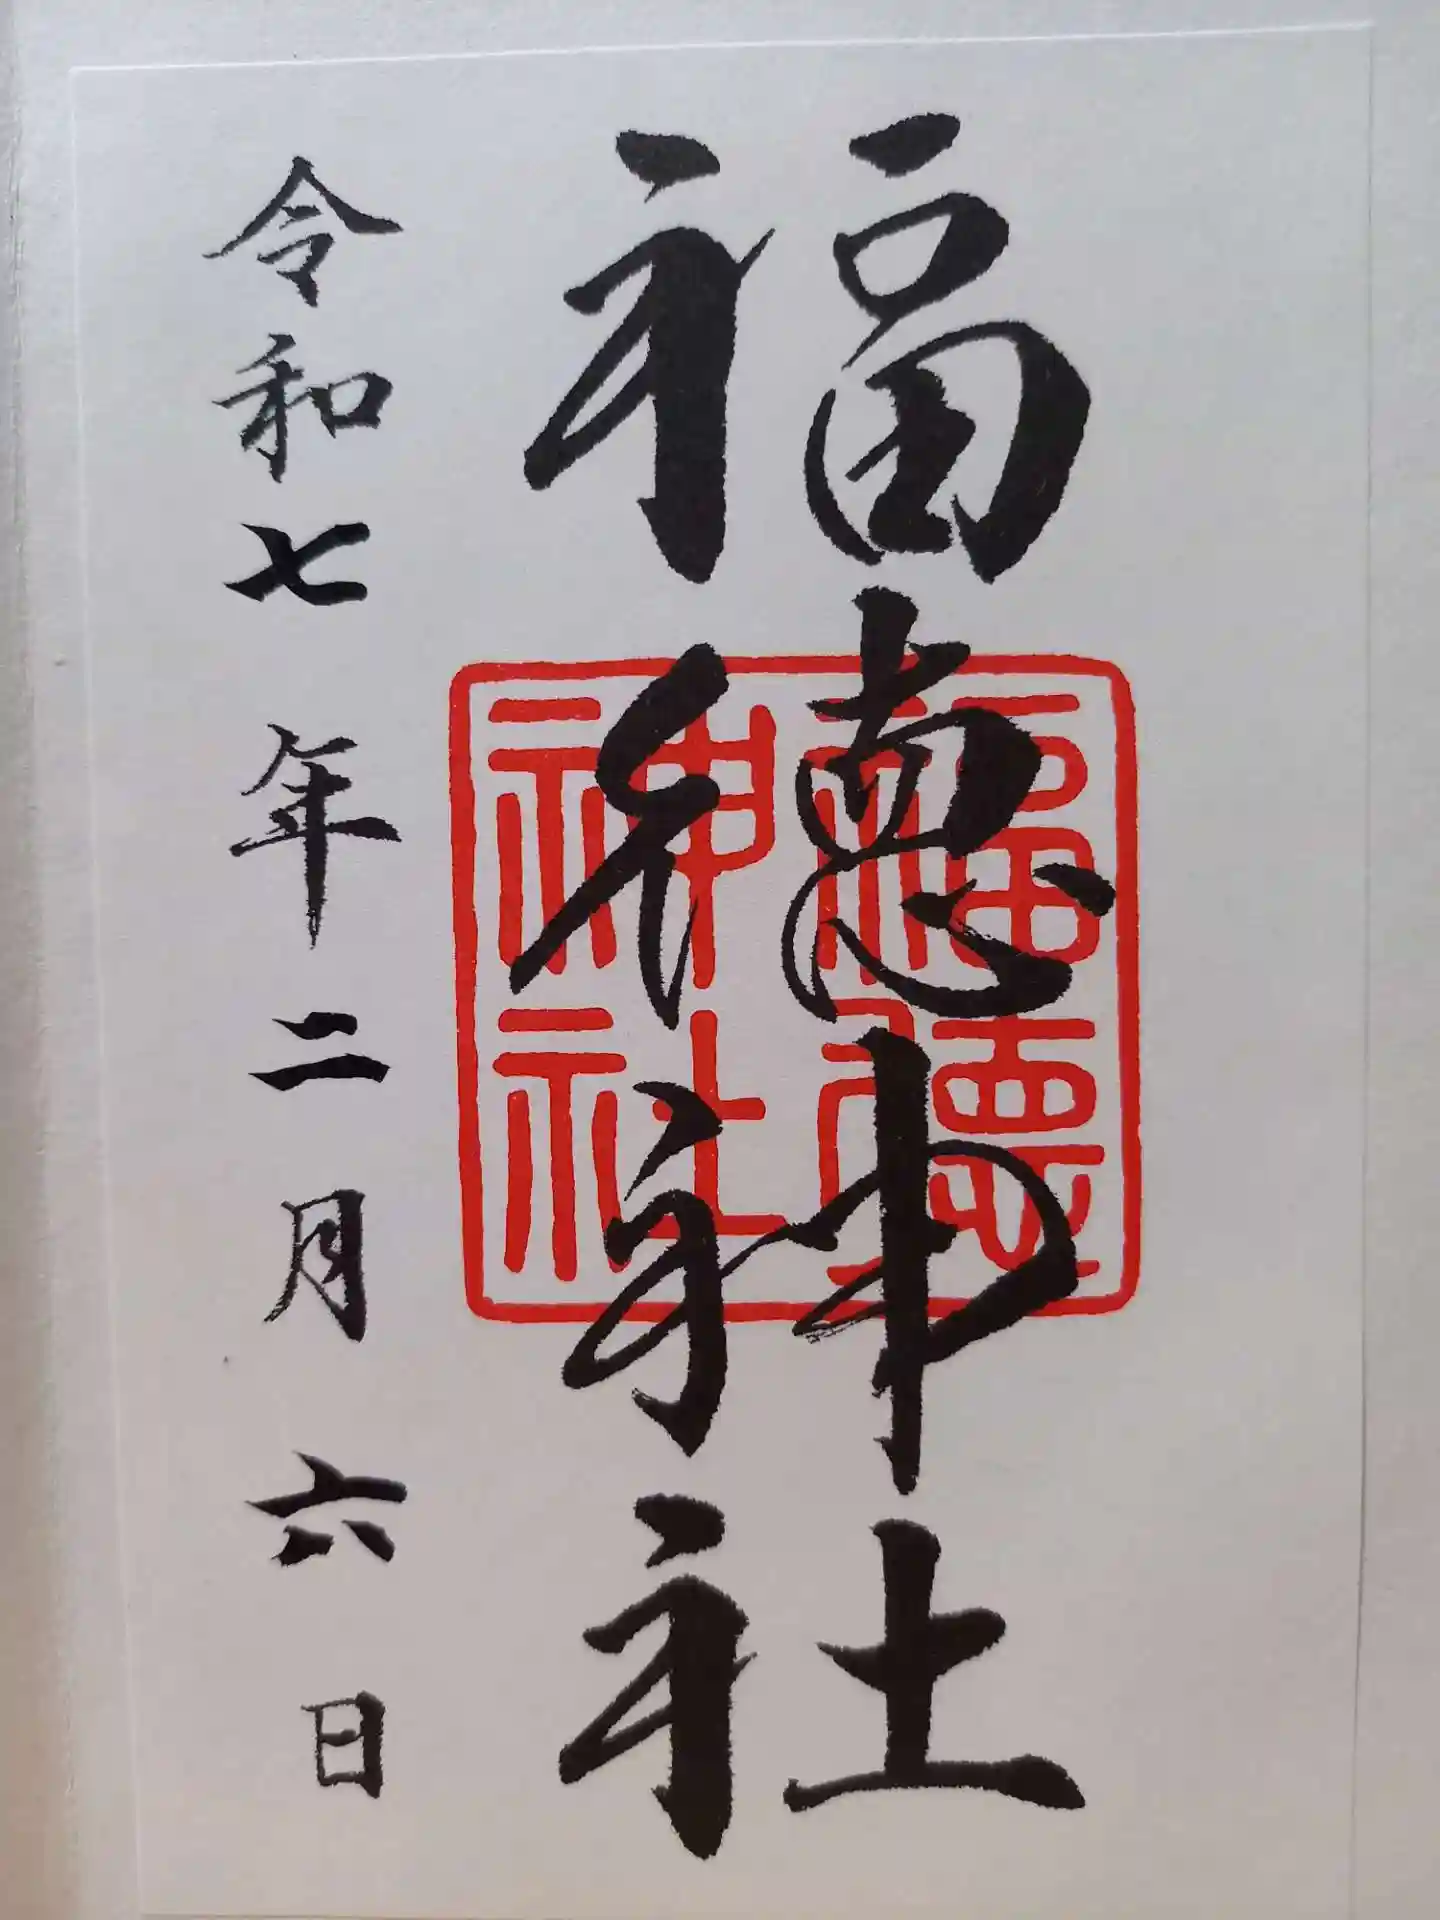 福徳神社
福徳神社
令和七年二月六日